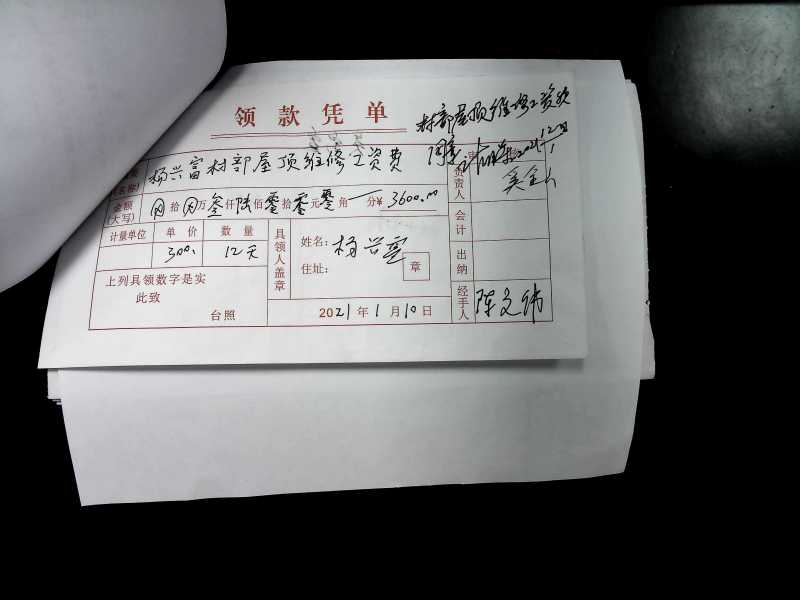 领款凭单
村部屋顶维修工资款
同意
杨兴富村部屋顶维修工资费
(名称)
金额
(大写)
拾 万叁仟陆佰零拾零元零角 分¥ 3600.00
计量单位 单价 数量
300. 12天
具领人盖章
姓名: 杨兴富
住址: 章
上列具领数字是实
此致
台照
2021年1月10日
负责人
会计
出纳
经手人
陈文伟